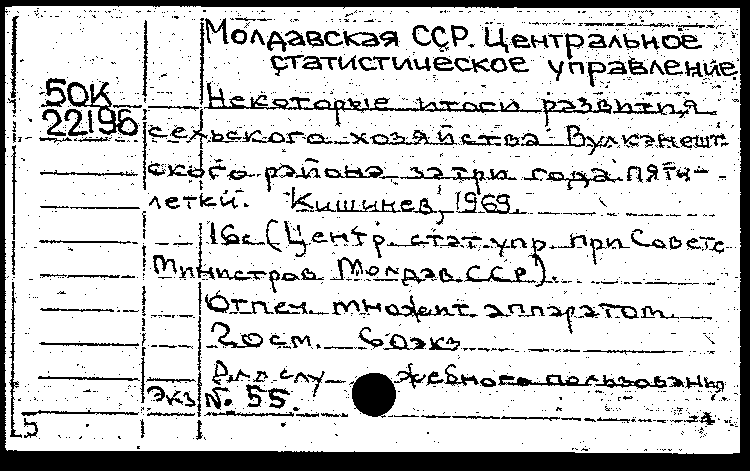 Молдавская ССР. Центральное
статистическое управление
50К
22196
Некоторые итоги развития
сельского хозяйства Вулканешт-
ского района за три года пяти-
летки. Кишинев, 1969.
16с (Центр. стат. упр. при Совете
Министров Молдав. ССР).
Отпеч. множит. аппаратом.
20 см. 60 экз
Для служебного пользования
Экз № 55.
5